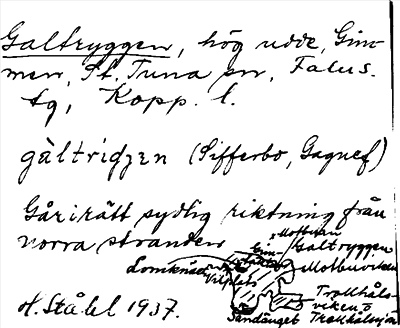 Galtryggen, hög udde, Gim-
men, St. Tuna sn, Falus.
tg, Kopp. l.
gàltridʒɛn (Sifferbo, Gagnef)
Går i rätt sydlig riktning från
norra stranden
Motburu
Galtryggen
Lomknäd
Vilplats
Motburviken
Trollhåls-
viken o
Sandänget Trollhålsudden
H. Ståhl 1937.